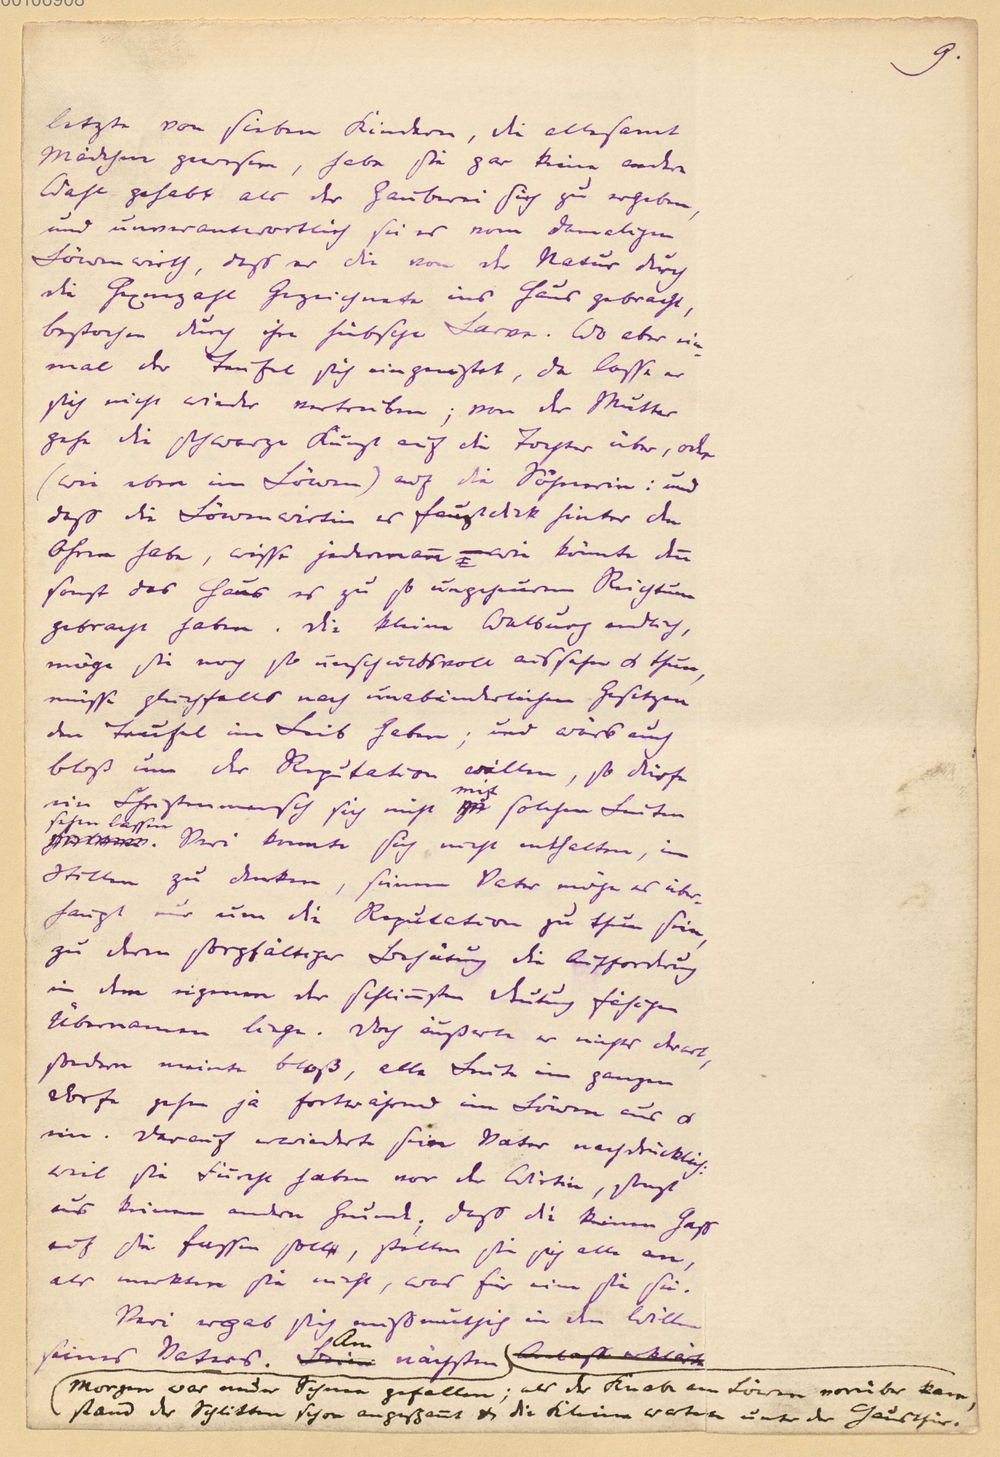 00106908
9.
letzte von sieben Kindern, die allesamt
Mädchen gewesen, habe sie gar keine andre
Wahl gehabt als der Zauberei sich zu ergeben,
und unverantwortlich sei es vom damaligen
Löwenwirth, daß er die von der Natur durch
die Hexenzahl Gezeichnete ins Haus gebracht,
bestochen durch ihre hübsche Larve. Wo aber ein-
mal der Teufel sich eingenistet, da lasse er
sich nicht wieder vertreiben; von der Mutter
gehe die schwarze Kunst auf die Tochter über, oder
(wie eben im Löwen) auf die Söhnerin: und
daß die Löwenwirtin es faustdick hinter den
Ohren habe, wisse jedermann wie könnte den
sonst das Haus es zu so ungeheurem Reichtum
gebracht haben. Die kleine Walburg endlich,
möge sie noch so unschuldsvoll aussehn & thun,
müsse gleichfalls nach unabänderlichen Gesetzen
den Teufel im Leib haben; und wärs auch
bloß um der Reputation willen, so dürfe
ein Christenmensch sich nicht mit solchen Leuten
sehen lassen. Veri konnte sich nicht enthalten, im
Stillen zu denken, seinem Vater möge es über-
haupt nur um die Reputation zu thun sein,
zu deren sorgfältiger Behütung die Aufforderung
in dem eigenen der schlimmsten Deutung fähigen
Übernamen liege. Doch äußerte er nichts derart,
sondern meinte bloß, alle Leute im ganzen
Dorfe gehen ja fortwährend im Löwen aus &
ein. Darauf erwiederte sein Vater nachdrücklich:
weil sie Furcht haben vor der Wirtin, sonst
aus keinem andern Grund; daß die keinen Haß
auf sie fassen sollt, stellen sie sich alle an,
als merkten sie nicht, was für eine sie sei.
Veri ergab sich mißmuthig in den Willen
seines Vaters. Am nächsten
Morgen war neuer Schnee gefallen; als der Knabe am Löwen vorüber kam,
stand der Schlitten schon angespannt & die Kleine wartete unter der Hausthür.